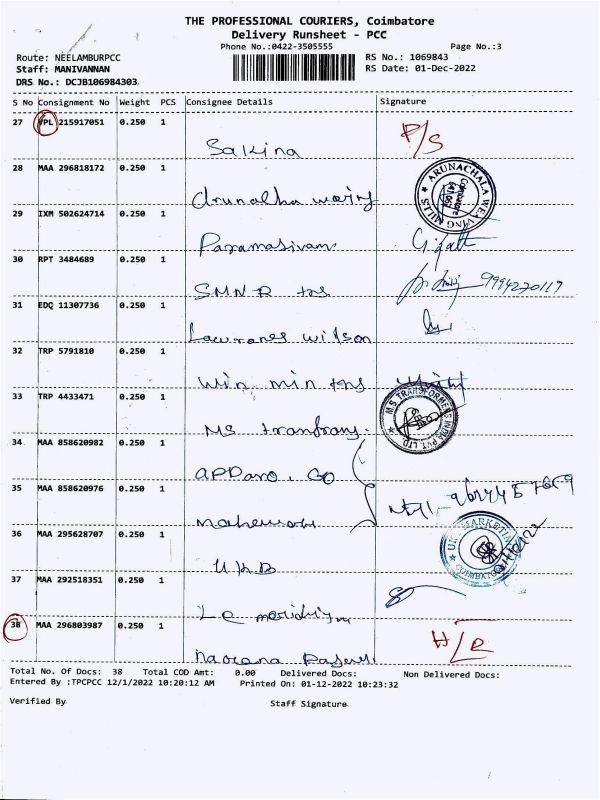 THE PROFESSIONAL COURIERS, Coimbatore
Delivery Runsheet - PCC
Phone No.:0422-3505555 Page No.:3
Route: NEELAMBURPCC RS No.: 1069843
Staff: MANIVANNAN RS Date: 01-Dec-2022
DRS No.: DCJB106984303
S No Consignment No Weight PCS Consignee Details Signature
27 VPL 215917051 0.250 1
Sakina P/S
28 MAA 296818172 0.250 1
ARUNACHALA WEAVING MILLS
29 IXM 502624714 0.250 1
Paramasivam
30 RPT 3484689 0.250 1
SMNR tss 9994270117
31 EDQ 11307736 0.250 1
Lawrones wilson
32 TRP 5791810 0.250 1
win min
33 TRP 4433471 0.250 1
MS
MS TRANSFORMERS INDIA PVT. LTD.
34 MAA 858620982 0.250 1
35 MAA 858620976 0.250 1
36 MAA 295628707 0.250 1
UKB
COIMBATORE
37 MAA 292518351 0.250 1
Le
38 MAA 296803987 0.250 1
Total No. Of Docs: 38 Total COD Amt: 0.00 Delivered Docs: Non Delivered Docs:
Entered By :TPCPCC 12/1/2022 10:20:12 AM Printed On: 01-12-2022 10:23:32
Verified By Staff Signature